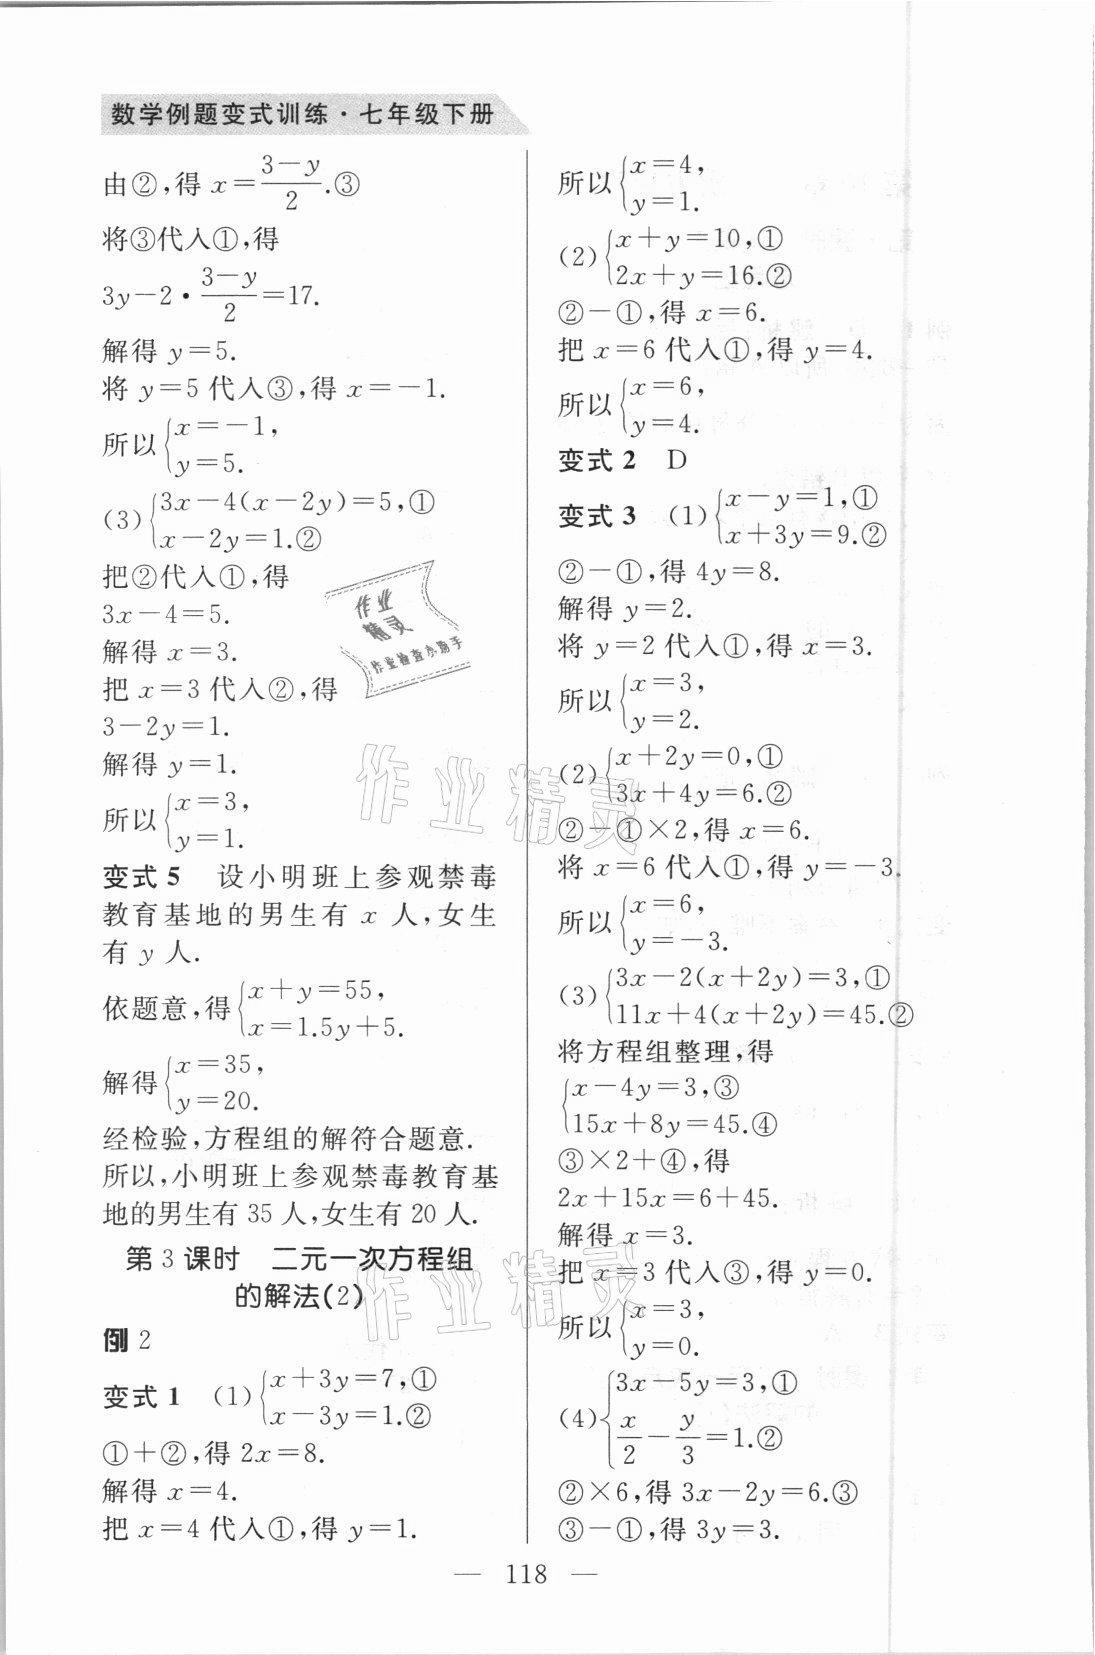 数学例题变式训练·七年级下册
由②,得 x=\frac{3-y}{2}.③
将③代入①,得
3y-2·\frac{3-y}{2}=17.
解得 y=5.
将 y=5 代入③,得 x=-1.
所以{x=-1,
y=5.
(3){3x-4(x-2y)=5,①
x-2y=1.②
把②代入①,得
3x-4=5.
解得 x=3.
把 x=3 代入②,得
3-2y=1.
解得 y=1.
所以{x=3,
y=1.
变式 5 设小明班上参观禁毒
教育基地的男生有 x 人,女生
有 y 人.
依题意,得{x+y=55,
x=1.5y+5.
解得{x=35,
y=20.
经检验,方程组的解符合题意.
所以,小明班上参观禁毒教育基
地的男生有 35 人,女生有 20 人.
第 3 课时 二元一次方程组
的解法(2)
例 2
变式 1 (1){x+3y=7,①
x-3y=1.②
①+②,得 2x=8.
解得 x=4.
把 x=4 代入①,得 y=1.
所以{x=4,
y=1.
(2){x+y=10,①
2x+y=16.②
②-①,得 x=6.
把 x=6 代入①,得 y=4.
所以{x=6,
y=4.
变式 2 D
变式 3 (1){x-y=1,①
x+3y=9.②
②-①,得 4y=8.
解得 y=2.
将 y=2 代入①,得 x=3.
所以{x=3,
y=2.
(2){x+2y=0,①
3x+4y=6.②
②-①×2,得 x=6.
将 x=6 代入①,得 y=-3.
所以{x=6,
y=-3.
(3){3x-2(x+2y)=3,①
11x+4(x+2y)=45.②
将方程组整理,得
{x-4y=3,③
15x+8y=45.④
③×2+④,得
2x+15x=6+45.
解得 x=3.
把 x=3 代入③,得 y=0.
所以{x=3,
y=0.
(4){3x-5y=3,①
\frac{x}{2}-\frac{y}{3}=1.②
②×6,得 3x-2y=6.③
③-①,得 3y=3.
— 118 —
作业
精灵
作业检查小助手
作业精灵
作业精灵